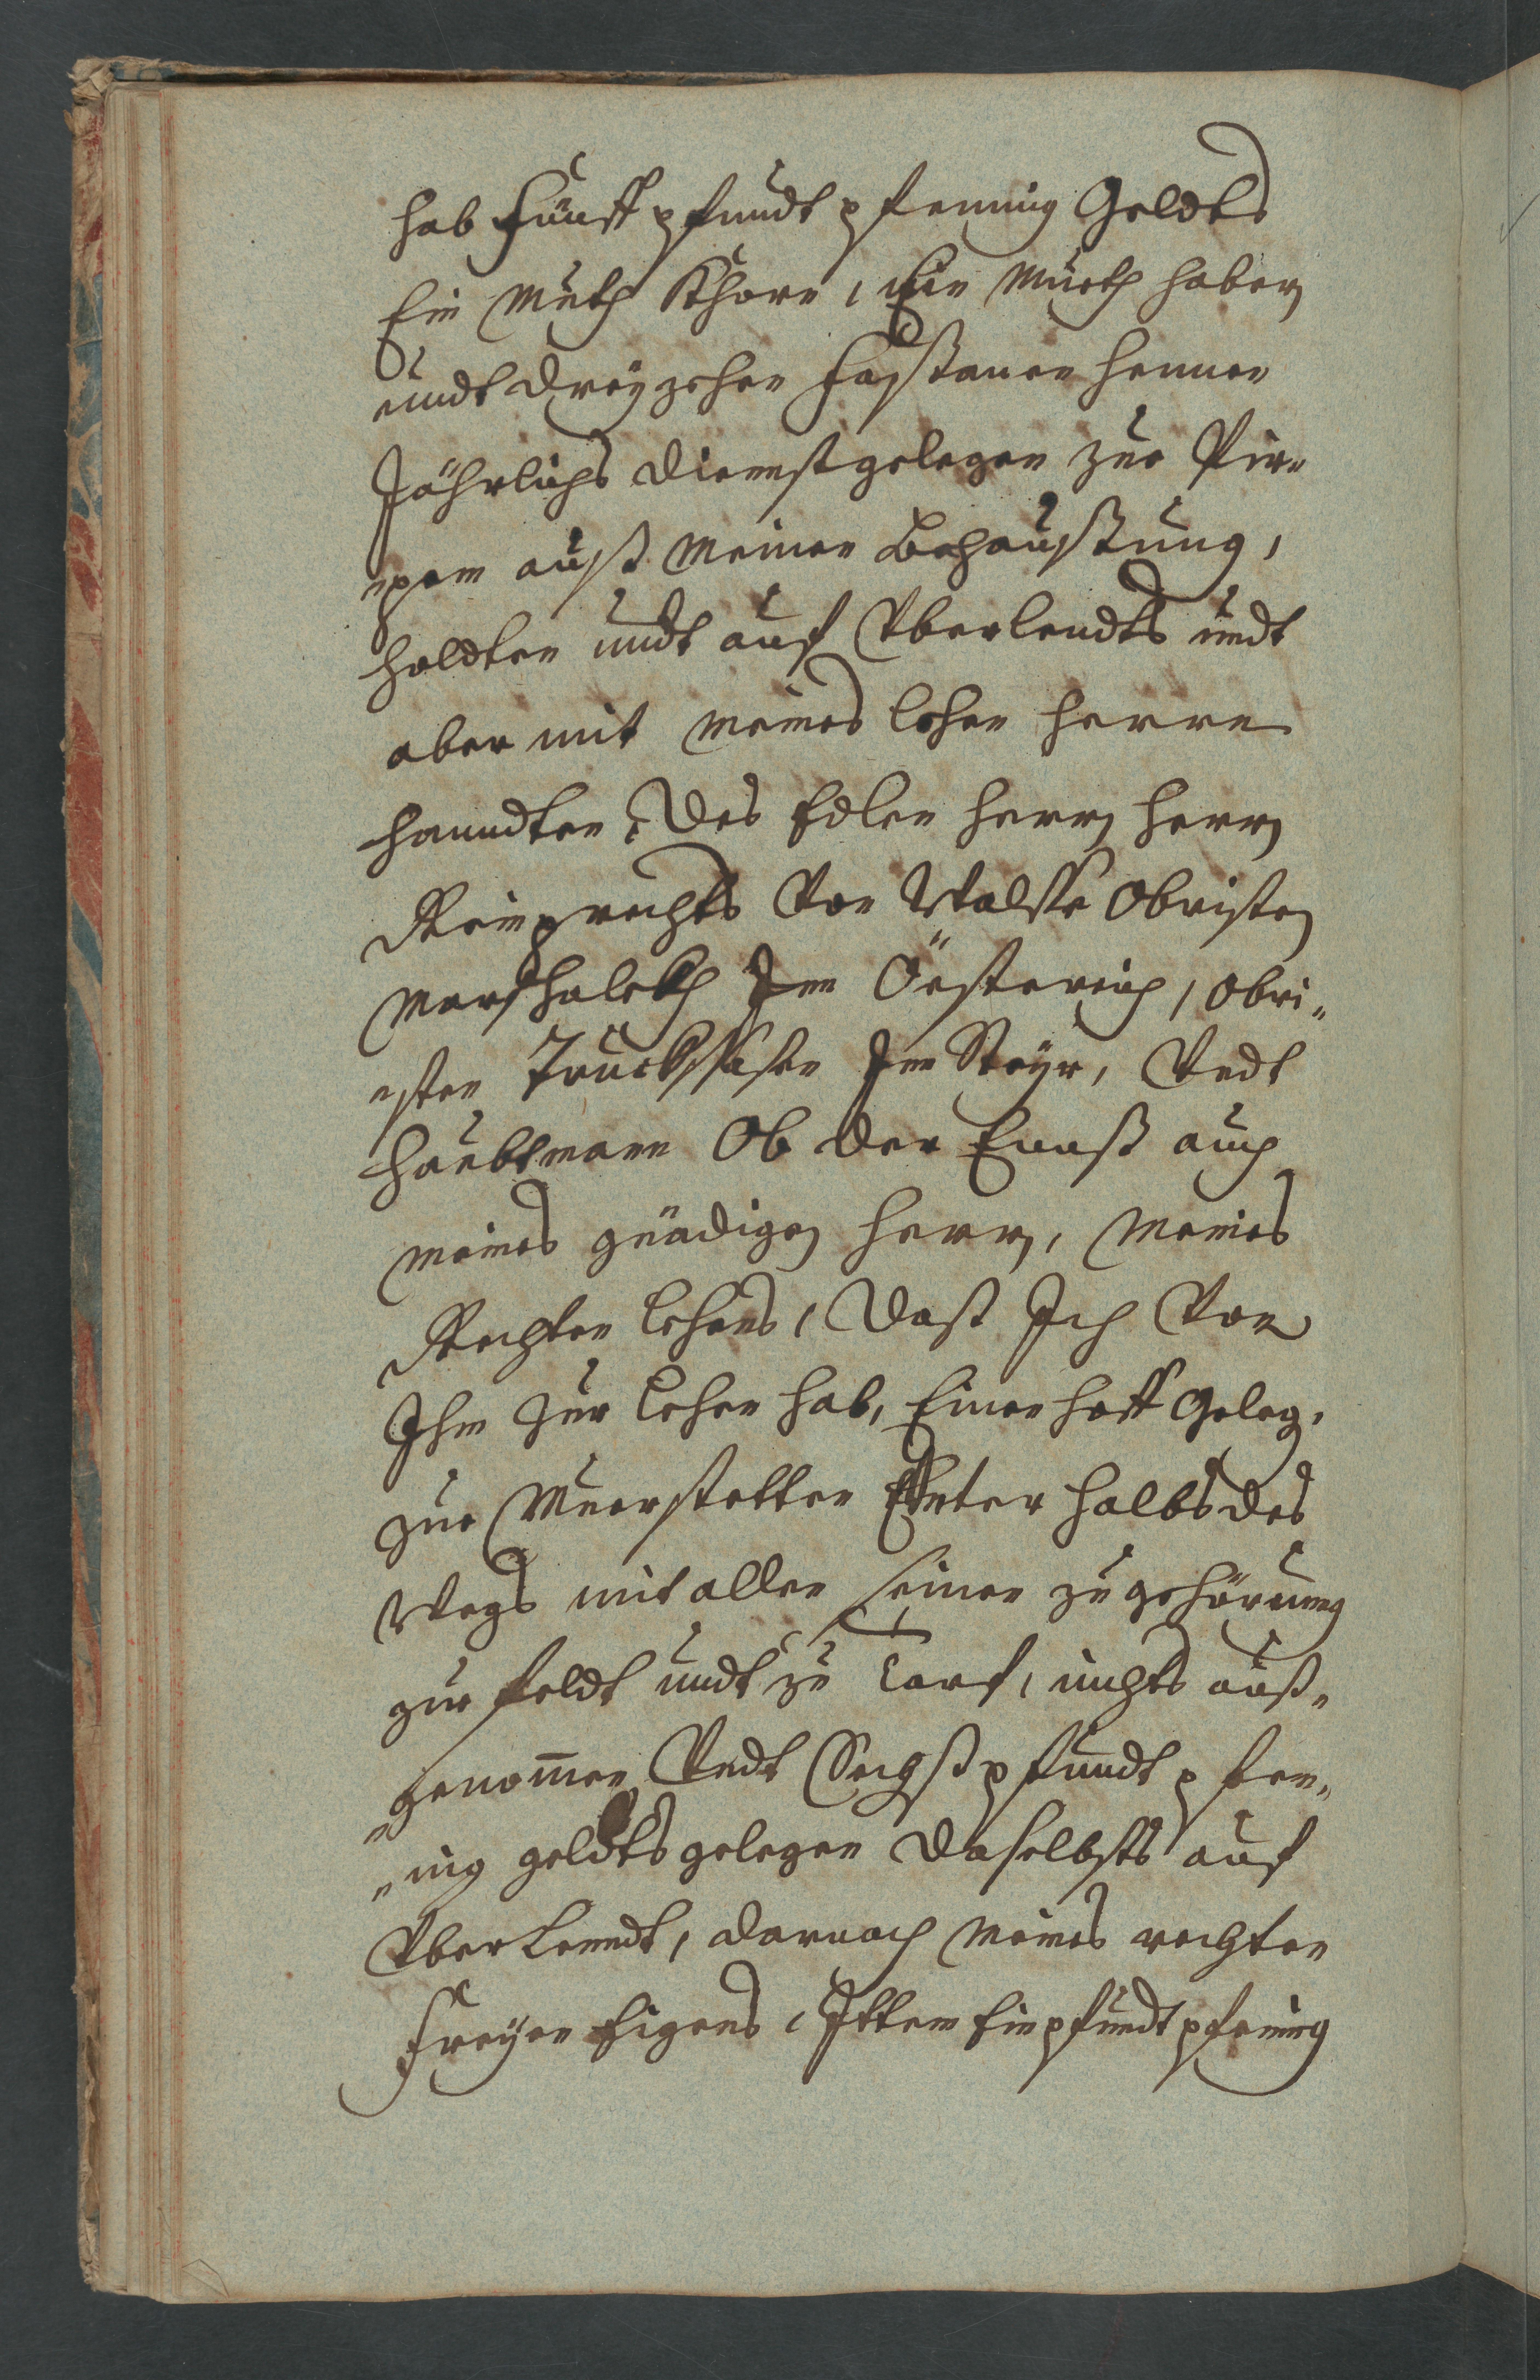 hab Fünff pfundt pfenning Geldts
Ein Muth Khorn, Ein Müeth haber
undt dreyzehen Faßtauen hennen
Jährlichs Diennst gelegen zue Pir„
„pam auß meinen Behaußung,
holdten undt auf Vberlendts undt
aber mit meines lehen herren
hanndten, Des Edlen herrn herrn
Reinprechts Von Wallsse Obristen
Marschalckh Inn Össterreich, Obri„
„sten Truckhsassen Inn Steyr, Vndt
haubtmann Ob der Ennß auch
meines gnädigen herrn, meines
Rechten lehens, Daß Ich Von
Ihm zue lehen hab, Einen hoff Geleg.
zue Muerstetten Enterhalbs des
Wegs mit allen seinen zugehörung
zue feldt undt zu Dorf, nichts auß„
„genommen Vndt Sechß pfundt pfen„
„ing geldts gelegen daselbsts auf
Vberlenndt, darnach meines rechten
Freyen Eigens, Ittem Ein pfundt pfening